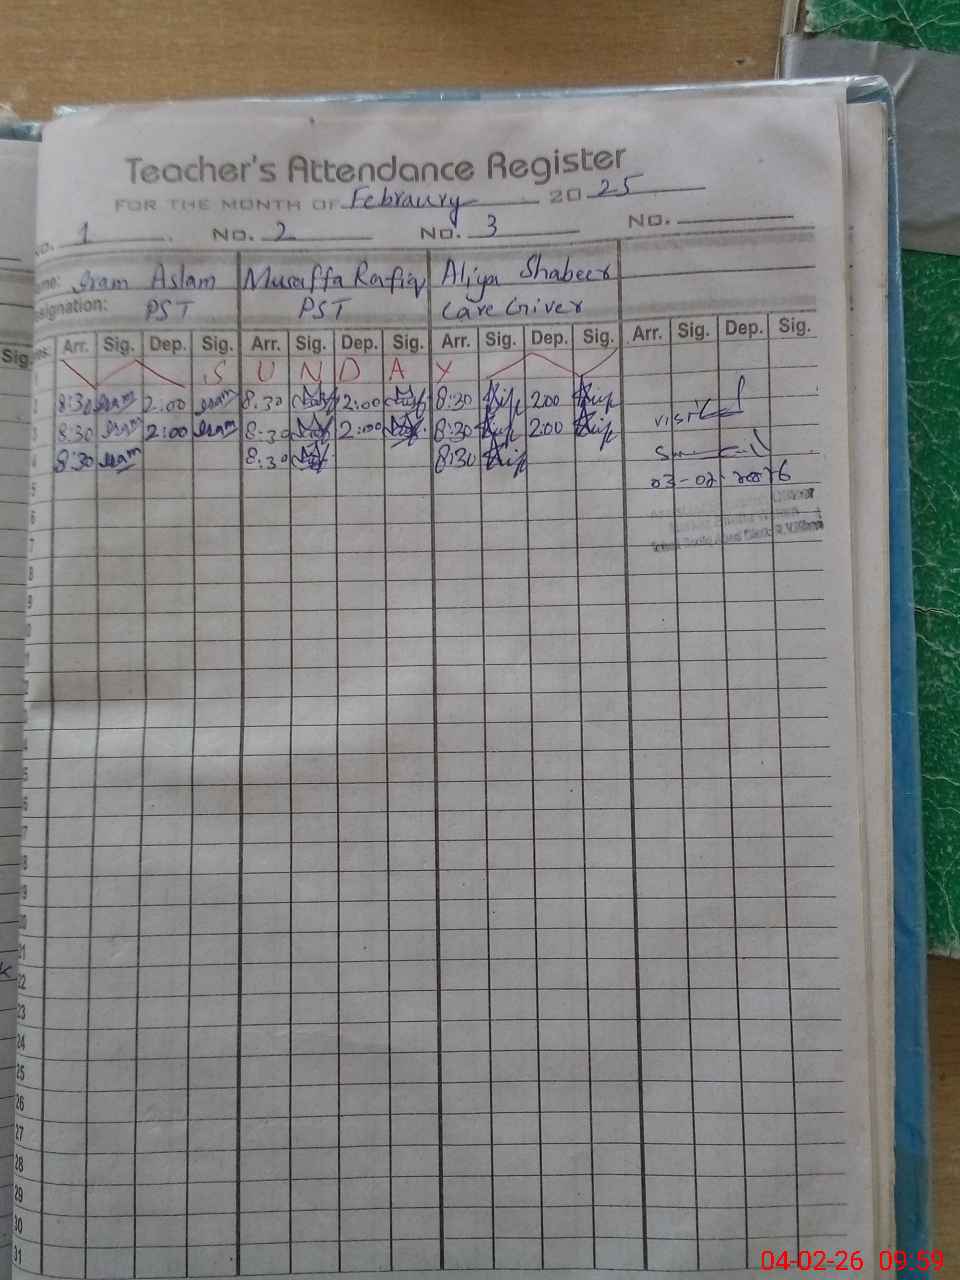 Teacher's Attendance Register
FOR THE MONTH OF Febraury 2025
No. 1 No. 2 No. 3 No.
me: Iram Aslam Musaffa Rafiq Aliya Shabeer
signation: PST PST Care Giver
Sig. es: Arr. Sig. Dep. Sig. Arr. Sig. Dep. Sig. Arr. Sig. Dep. Sig. Arr. Sig. Dep. Sig.
1 S U N D A Y
2 8:30 Iram 2:00 Iram 8:30 2:00 8:30 2:00
visited
3 8:30 Iram 2:00 Iram 8:30 2:00 8:30 2:00
4 8:30 Iram 8:30 8:30
03-02-2026
5
6
7
8
9
0
1
2
3
4
5
6
7
8
9
20
21
22
23
24
25
26
27
28
29
30
31
04-02-26 09:59